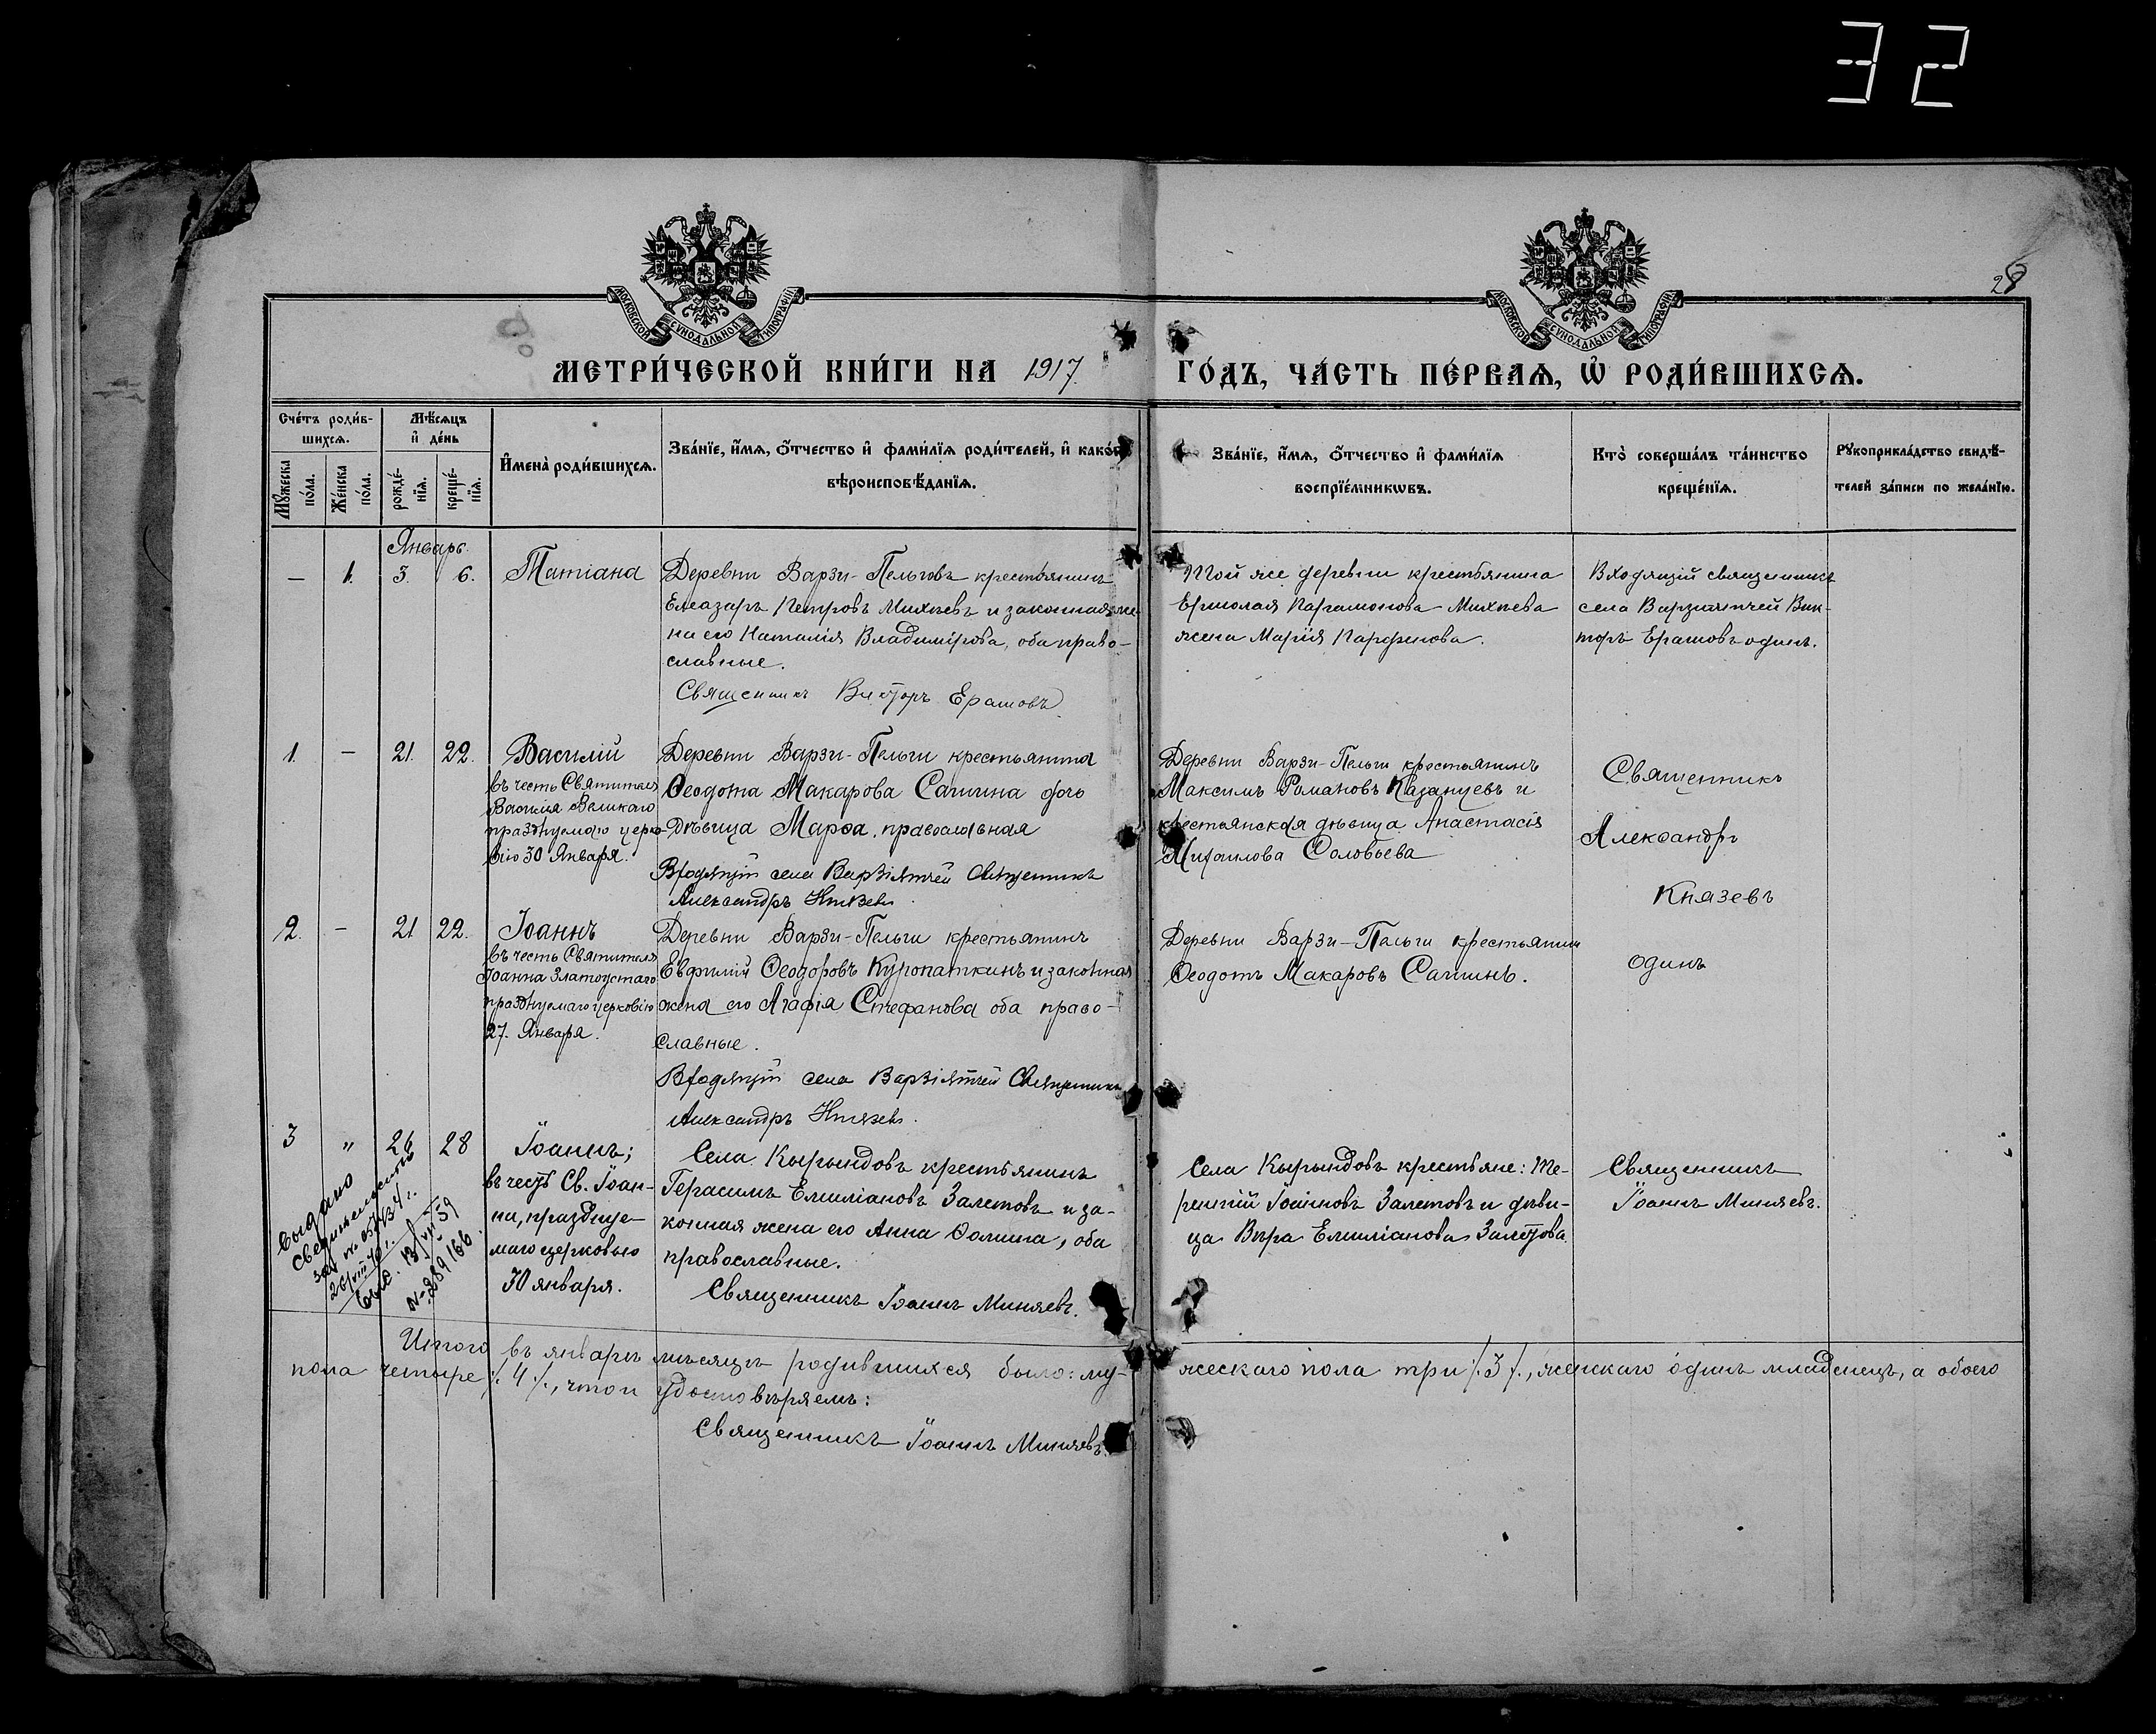 32
МОСКОВСКОЙ СУНОДАЛЬНОЙ ТИПОГРАФІИ
МОСКОВСКОЙ СУНОДАЛЬНОЙ ТИПОГРАФІИ
28
МЕТРИ́ЧЕСКОЙ КНИ́ГИ НА 1917 ГО́ДЪ, ЧА́СТЬ ПЕ́РВАѦ, Ѡ҆ РОДИ́ВШИХСѦ.
Счéтъ роди́в-
шихсѧ.
Мѣ́сѧцъ
и҆ де́нь
Мꙋ́жеска
по́ла.
Же́нска
по́ла.
рожде́-
нїѧ.
креще́-
нїѧ.
И҆мена̀ роди́вшихсѧ.
Зва́нїе, и҆́мѧ, ѻ҆́тчество и҆ фами́лїѧ роди́телей, и҆ како́гѡ
вѣроисповѣ́данїѧ.
Зва́нїе, и҆́мѧ, ѻ҆́тчество и҆ фами́лїѧ
воспрїе́мникѡвъ.
Кто̀ соверша́лъ та́инство
креще́нїѧ.
Рꙋкоприкла́дство свидѣ́-
телей за́писи по жела́нїю.
Январь.
— 1. 3. 6. Татіана
Деревни Варзи-Пельговъ крестьянинъ
Елеазаръ Петровъ Михѣевъ и законная же-
на его Наталія Владимірова, оба право-
славные.
Священникъ Викторъ Ерашовъ
Той же деревни крестьянина
Ермолая Парамонова Михѣева
жена Марія Парфенова.
Входящій священникъ
села Варзіятчей Вик-
торъ Ерашовъ одинъ.
1. — 21. 22. Василій
въ честь Святителя
Василія Великаго
празднуемаго церко-
вію 30 Января.
Деревни Варзи-Пельги крестьянина
Ѳеодота Макарова Сатина дочь
Дѣвица Марѳа, православная
Входящій села Варзіятчей Священникъ
Александръ Князевъ
Деревни Варзи-Пельги крестьянинъ
Максимъ Романовъ Казанцевъ и
крестьянская дѣвица Анастасія
Михаилова Соловьева
Священникъ
Александръ
Князевъ
одинъ
2. — 21 22. Іоаннъ
въ честь Святителя
Іоанна Златоустаго
празднуемаго церковію
27. Января.
Деревни Варзи-Пельги крестьянинъ
Евфимій Ѳеодоровъ Куропаткинъ и законная
жена его Агафія Стефанова оба право-
славные.
Входящій села Варзіятчей Священникъ
Александръ Князевъ.
Деревни Варзи-Пельги крестьянин
Ѳеодотъ Макаровъ Сатинъ.
3 " 26 28 Іоаннъ;
въ честь Св. Іоан-
на, празднуе-
маго церковью
30 января.
Выдано
свидетельство
выд. 13/VII 59
№ 289166.
Села Кырындовъ крестьянинъ
Герасимъ Емиліановъ Залетовъ и за-
конная жена его Анна Ѳомина, оба
православные.
Священникъ Іоаннъ Миняевъ.
Села Кырындовъ крестьяне: Те-
рентій Іоанновъ Залетовъ и дѣви-
ца Вѣра Емиліанова Залетова.
Священникъ
Іоаннъ Миняевъ.
Итого въ январѣ мѣсяцѣ родившихся было: му-жескаго пола три /.3./, женскаго одинъ младенецъ, а обоего
пола четыре /.4./, что и удостовѣряемъ:
Священникъ Іоаннъ Миняевъ.